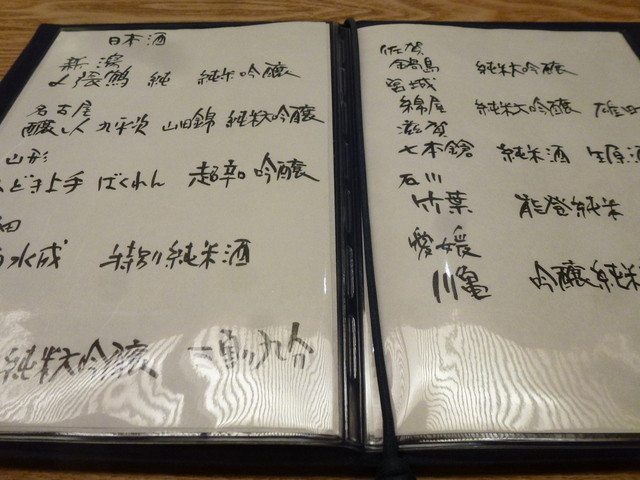 日本酒
新潟
〆張鶴 純 純米吟醸
名古屋
醸し人 九平次 山田錦 純米大吟醸
山形
上手 ばくれん 超辛 吟醸
田
水成 特別純米酒
純米大吟醸 二割九分
佐賀
鍋島 純米大吟醸
宮城
綿屋 純米大吟醸 雄町
滋賀
七本鎗 純米酒 生原酒
石川
竹葉 能登純米
愛媛
川亀 吟醸純米